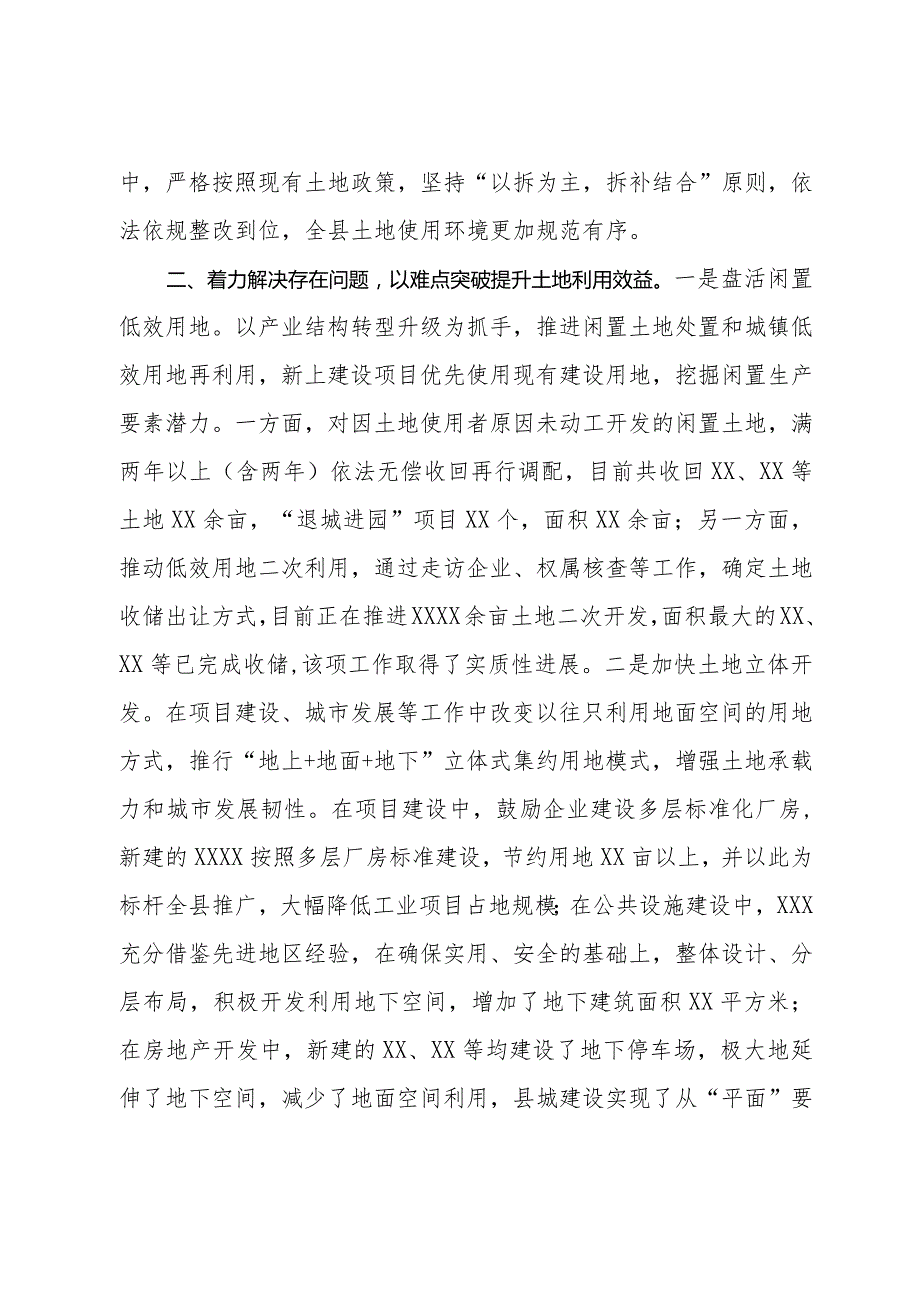 中，严格按照现有土地政策，坚持“以拆为主，拆补结合”原则，依
法依规整改到位，全县土地使用环境更加规范有序。
二、着力解决存在问题，以难点突破提升土地利用效益。一是盘活闲置
低效用地。以产业结构转型升级为抓手，推进闲置土地处置和城镇低
效用地再利用，新上建设项目优先使用现有建设用地，挖掘闲置生产
要素潜力。一方面，对因土地使用者原因未动工开发的闲置土地，满
两年以上（含两年）依法无偿收回再行调配，目前共收回 XX、XX 等
土地 XX 余亩，“退城进园”项目 XX 个，面积 XX 余亩；另一方面，
推动低效用地二次利用，通过走访企业、权属核查等工作，确定土地
收储出让方式,目前正在推进 XXXX 余亩土地二次开发,面积最大的 XX、
XX 等已完成收储,该项工作取得了实质性进展。二是加快土地立体开
发。在项目建设、城市发展等工作中改变以往只利用地面空间的用地
方式，推行“地上+地面+地下”立体式集约用地模式，增强土地承载
力和城市发展韧性。在项目建设中，鼓励企业建设多层标准化厂房，
新建的 XXXX 按照多层厂房标准建设，节约用地 XX 亩以上，并以此为
标杆全县推广，大幅降低工业项目占地规模；在公共设施建设中，XXX
充分借鉴先进地区经验，在确保实用、安全的基础上，整体设计、分
层布局，积极开发利用地下空间，增加了地下建筑面积 XX 平方米；
在房地产开发中，新建的 XX、XX 等均建设了地下停车场，极大地延
伸了地下空间，减少了地面空间利用，县城建设实现了从“平面”要